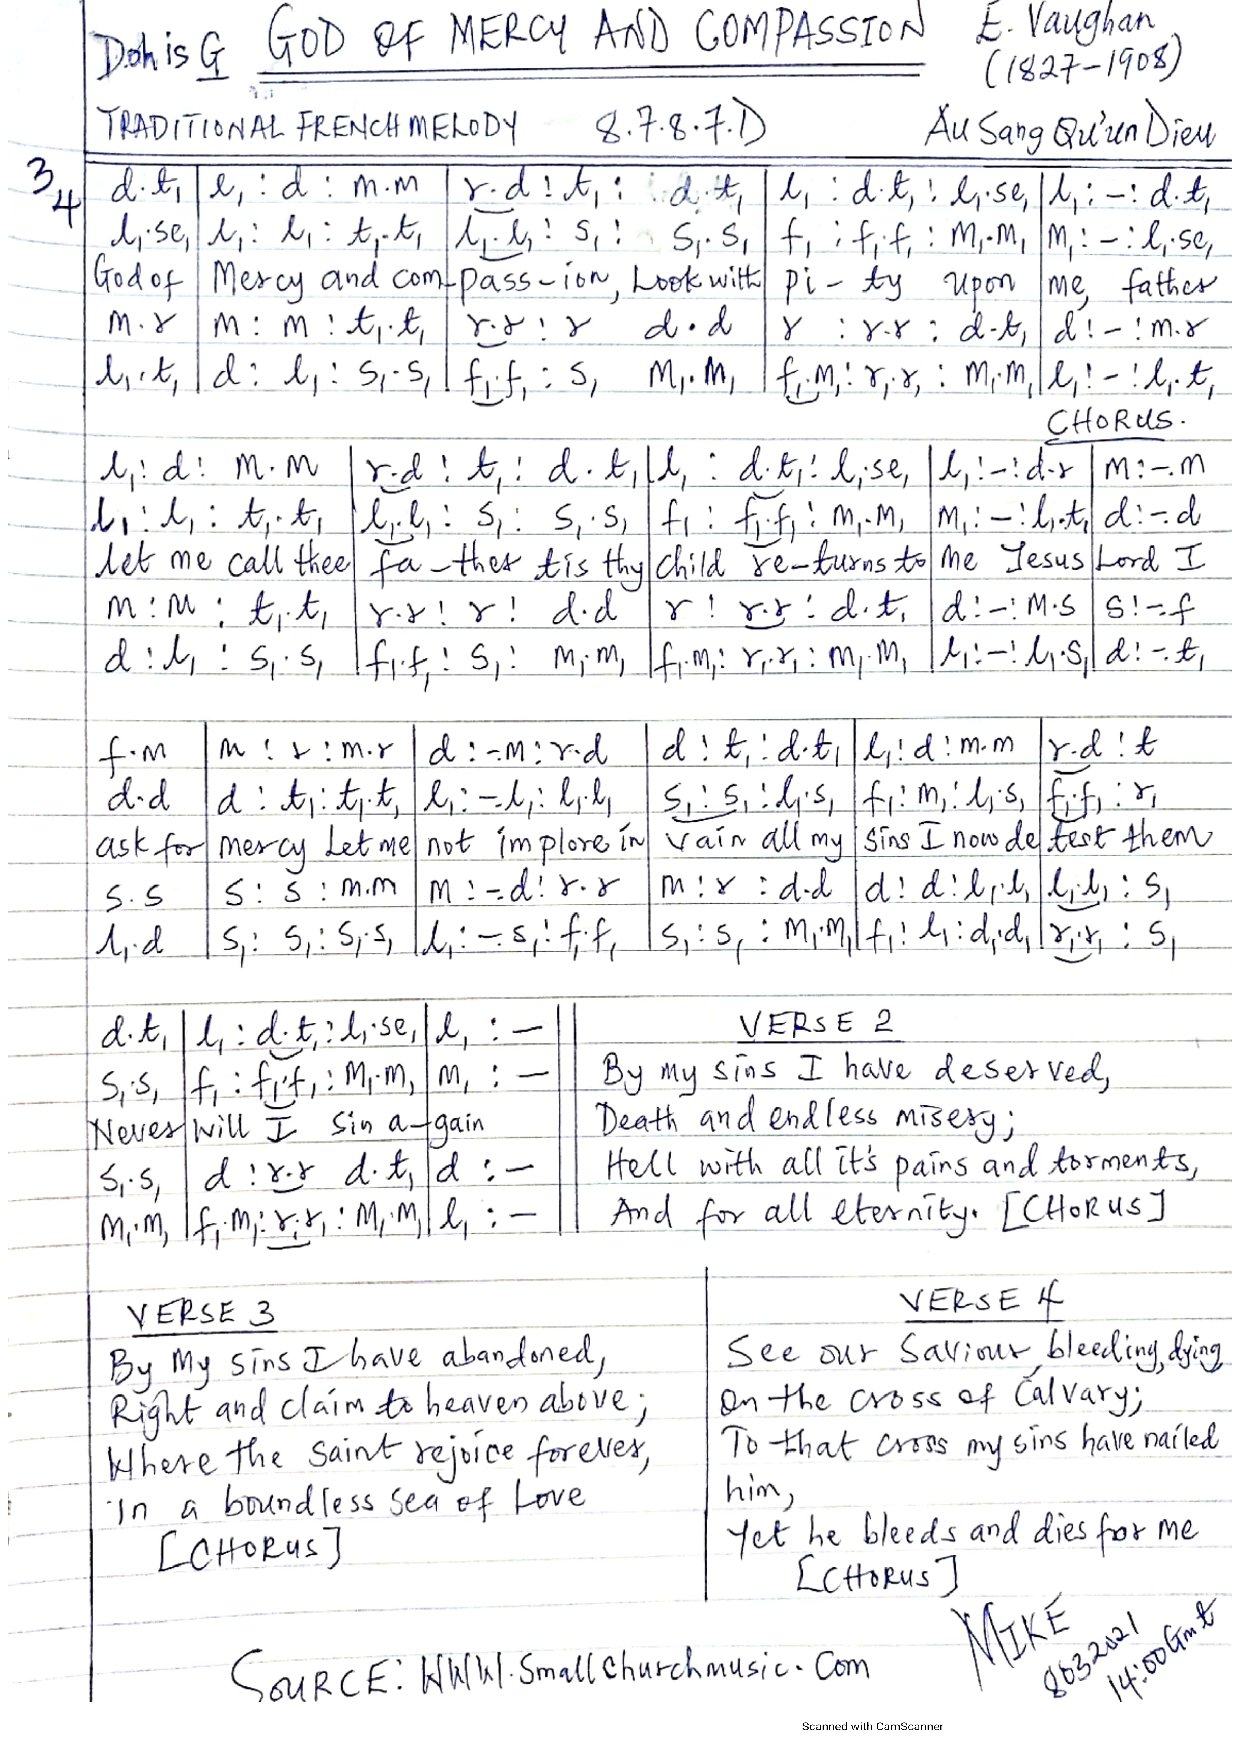 Doh is G GOD OF MERCY AND COMPASSION E. Vaughan
(1827-1908)
TRADITIONAL FRENCH MELODY 8.7.8.7.D Au Sang Qu'un Dieu
3/4
d.t₁ | l₁ : d : m.m | r.d : t₁ : d.t₁ | l₁ : d.t₁ : l₁.se₁ | l₁ : - : d.t₁
l₁.se₁ | l₁ : l₁ : t₁.t₁ | l₁.l₁ : s₁ : s₁.s₁ | f₁ : f₁.f₁ : m₁.m₁ | m₁ : - : l₁.se₁
God of | Mercy and com- | pass-ion, Look with | pi-ty upon | me, father
m.r | m : m : t₁.t₁ | r.r : r d.d | r : r.r : d.t₁ | d : - : m.r
l₁.t₁ | d : l₁ : s₁.s₁ | f₁.f₁ : s₁ m₁.m₁ | f₁.m₁ : r₁.r₁ : m₁.m₁ | l₁ : - : l₁.t₁
CHORUS.
l₁ : d : m.m | r.d : t₁ : d.t₁ | l₁ : d.t₁ : l₁.se₁ | l₁ : - : d.r | m : -.m
l₁ : l₁ : t₁.t₁ | l₁.l₁ : s₁ : s₁.s₁ | f₁ : f₁.f₁ : m₁.m₁ | m₁ : - : l₁.t₁ | d : -.d
let me call thee | fa-ther tis thy | child re-turns to | me Jesus | Lord I
m : m : t₁.t₁ | r.r : r : d.d | r : r.r : d.t₁ | d : - : m.s | s : -.f
d : l₁ : s₁.s₁ | f₁.f₁ : s₁ : m₁.m₁ | f₁.m₁ : r₁.r₁ : m₁.m₁ | l₁ : - : l₁.s₁ | d : -.t₁
f.m | m : r : m.r | d : -.m : r.d | d : t₁ : d.t₁ | l₁ : d : m.m | r.d : t
d.d | d : t₁ : t₁.t₁ | l₁ : -.l₁ : l₁.l₁ | s₁ : s₁ : l₁.s₁ | f₁ : m₁ : l₁.s₁ | f₁.f₁ : r₁
ask for | mercy Let me | not implore in | vain all my | sins I now de | test them
s.s | s : s : m.m | m : -.d : r.r | m : r : d.d | d : d : l₁.l₁ | l₁.l₁ : s₁
l₁.d | s₁ : s₁ : s₁.s₁ | l₁ : -.s₁ : f₁.f₁ | s₁ : s₁ : m₁.m₁ | f₁ : l₁ : d₁.d₁ | r₁.r₁ : s₁
d.t₁ | l₁ : d.t₁ : l₁.se₁ | l₁ : - ||
s₁.s₁ | f₁ : f₁.f₁ : m₁.m₁ | m₁ : - ||
Never | will I sin a- | gain
s₁.s₁ | d : r.r d.t₁ | d : - ||
m₁.m₁ | f₁.m₁ : r₁.r₁ : m₁.m₁ | l₁ : - ||
VERSE 2
By my sins I have deserved,
Death and endless misery;
Hell with all it's pains and torments,
And for all eternity. [CHORUS]
VERSE 3
By My sins I have abandoned,
Right and claim to heaven above;
Where the saint rejoice forever,
In a boundless sea of Love
[CHORUS]
VERSE 4
See our Saviour, bleeding, dying
On the cross of Calvary;
To that cross my sins have nailed
him,
Yet he bleeds and dies for me
[CHORUS]
MIKE
8032021
14:00Gmt
SOURCE: WWW.Smallchurchmusic.Com
Scanned with CamScanner